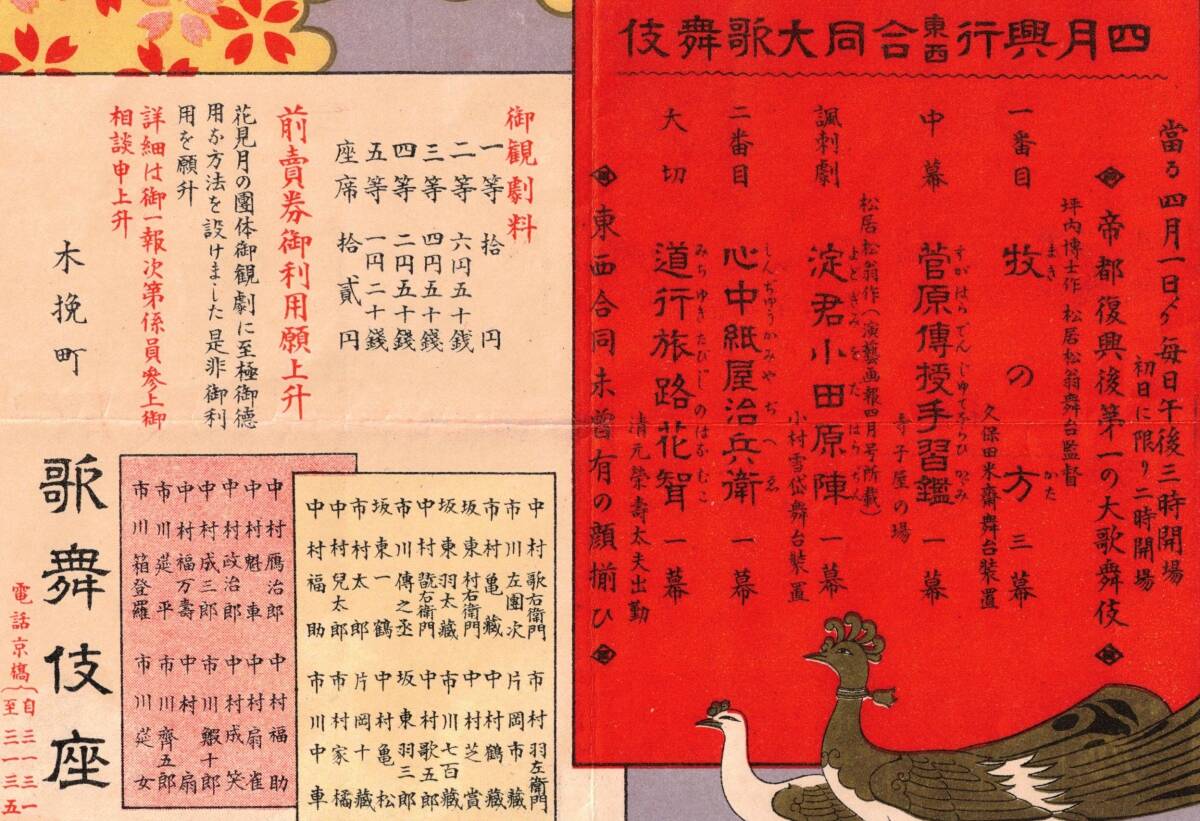 四月興行東西合同大歌舞伎
當る四月一日ゟ毎日午後三時開場
初日に限り二時開場
帝都復興後第一の大歌舞伎
坪内博士作 松居松翁舞台監督
一番目 牧の方 三幕
まき かた
久保田米齋舞台装置
中幕 菅原傳授手習鑑 一幕
すがはらでんじゆてならひかゞみ
寺子屋の場
松居松翁作(演藝画報四月号所載)
諷刺劇 淀君小田原陣 一幕
よどぎみをだはらぢん
小村雪岱舞台装置
二番目 心中紙屋治兵衛 一幕
しんぢゆうかみやぢへゑ
大切 道行旅路花聟 一幕
みちゆきたびぢのはなむこ
清元榮壽太夫出勤
東西合同未曾有の顔揃ひ
御観劇料
一等 拾円
二等 六円五十銭
三等 四円五十錢
四等 二円五十錢
五等 一円二十錢
座席 拾貳円
前賣券御利用願上升
花見月の團体御観劇に至極御徳
用な方法を設けました是非御利
用を願升
詳細は御一報次第係員参上御
相談申上升
木挽町
歌舞伎座
電話京橋(自三一三一至三一三五)
中村歌右衛門
市川左團次
市村亀藏
坂東村右衛門
坂東羽太藏
中村翫右衛門
市川傳之丞
坂東一鶴
市村太郎
中村兒太郎
中村福助
市村羽左衛門
片岡市藏
中村鶴藏
中村芝賞
市川七百藏
中村歌五郎
坂東羽三郎
中村亀松
片岡十藏
市村家橘
市川中車
中村鴈治郎
中村魁車
中村政治郎
中村成三郎
中村福万壽
市川莚平
市川箱登羅
中村福助
中村扇雀
中村成笑
市川鰕十郎
中村扇
市川齊五郎
市川莚女